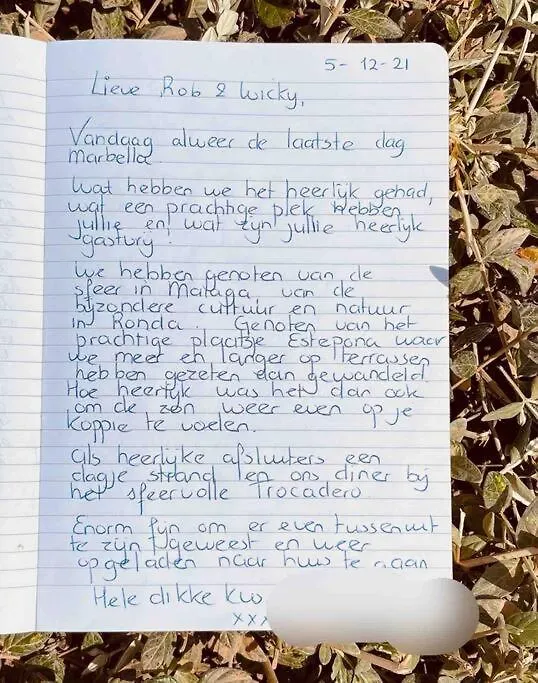 5-12-21
Lieve Rob & Wicky,
Vandaag alweer de laatste dag
Marbella.
Wat hebben we het heerlijk gehad,
wat een prachtige plek hebben
jullie en wat zijn jullie heerlijk
gastvrij!
We hebben genoten van de
sfeer in Malaga van de
bijzondere cultuur en natuur
in Ronda. Genoten van het
prachtige plaatsje Estepona waar
we meer en langer op terrassen
hebben gezeten dan gewandeld.
Hoe heerlijk was het dan ook
om de zon weer even op je
koppie te voelen.
Als heerlijke afsluiters een
dagje strand en ons diner bij
het sfeervolle Trocadero.
Enorm fijn om er even tussenuit
te zijn geweest en weer
opgeladen naar huis te gaan
Hele dikke kus
xxx